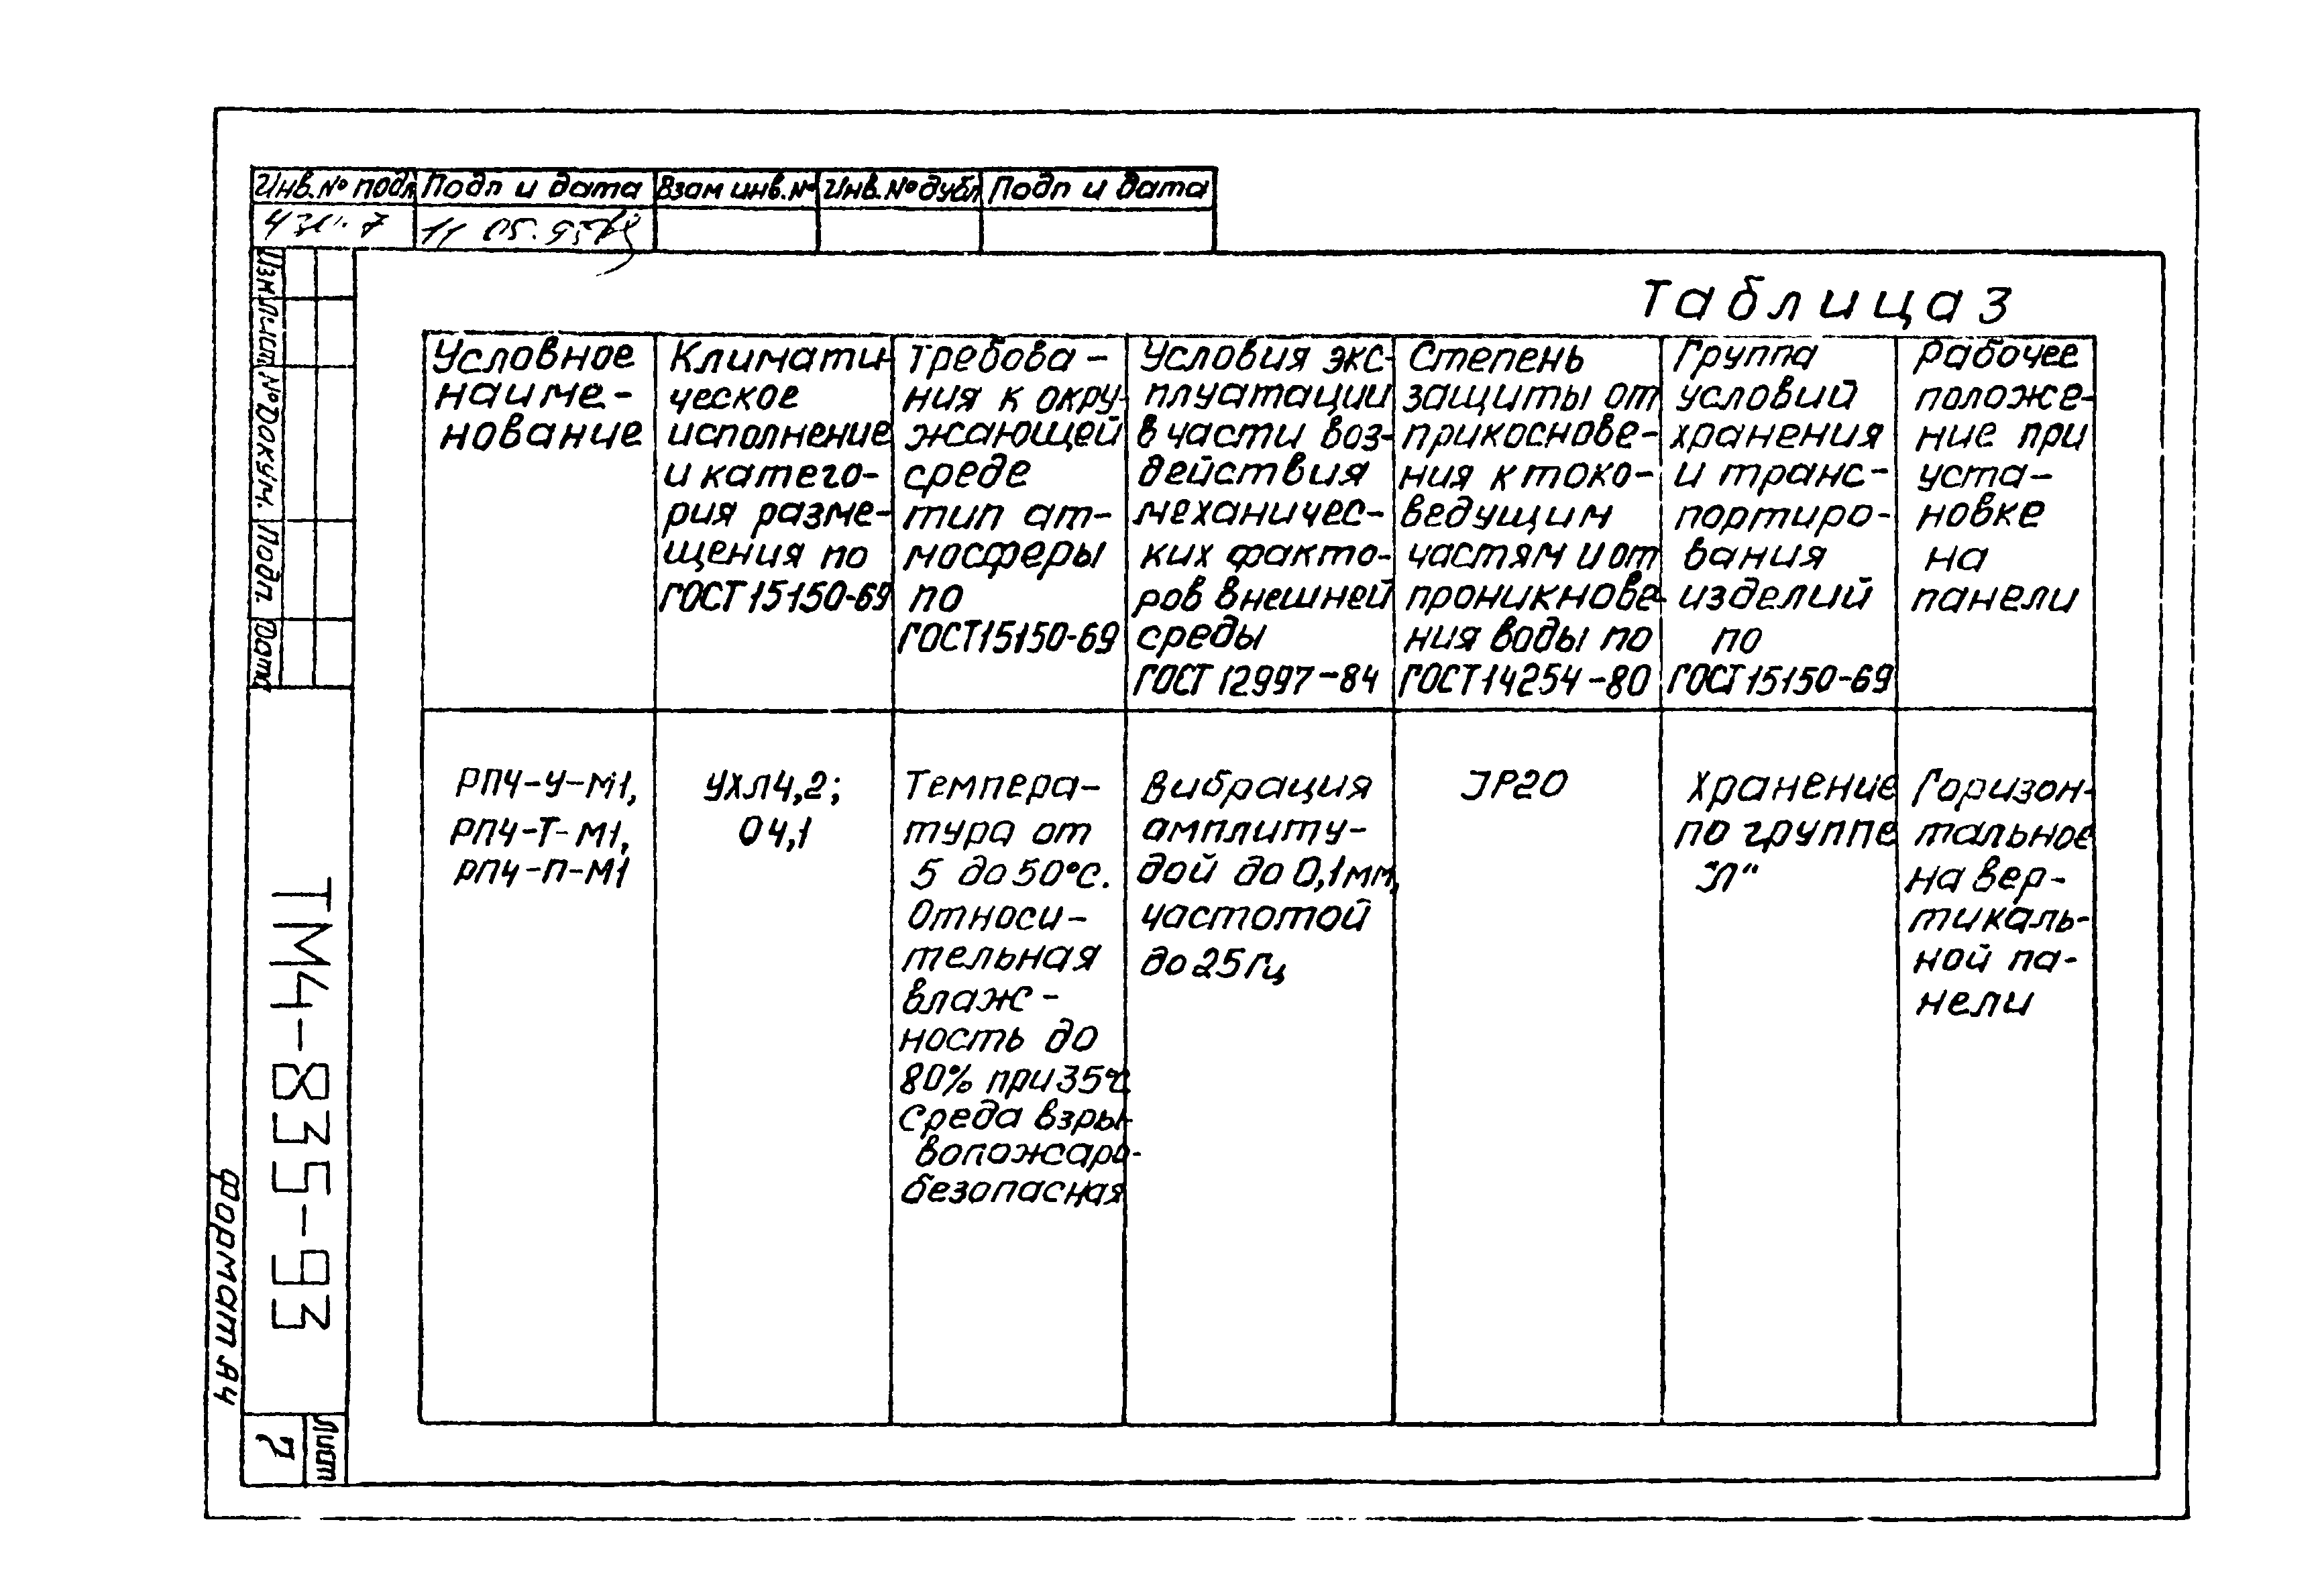 Инв.№ подл Подп и дата Взам инв.№ Инв.№ дубл Подп и дата
11 05.95
Таблица 3
Условное
наиме-
нование
Климати-
ческое
исполнение
и катего-
рия разме-
щения по
ГОСТ 15150-69
Требова-
ния к окру-
жающей
среде
тип ат-
мосферы
по
ГОСТ 15150-69
Условия экс-
плуатации
в части воз-
действия
механичес-
ких факто-
ров внешней
среды
ГОСТ 12997-84
Степень
защиты от
прикоснове-
ния к токо-
ведущим
частям и от
проникнове-
ния воды по
ГОСТ 14254-80
Группа
условий
хранения
и транс-
портиро-
вания
изделий
по
ГОСТ 15150-69
Рабочее
положе-
ние при
уста-
новке
на
панели
РПЧ-У-М1,
РПЧ-Т-М1,
РПЧ-П-М1
УХЛ4,2;
О4,1
Темпера-
тура от
5 до 50°С.
Относи-
тельная
влаж-
ность до
80% при 35°С
Среда взры-
вопожаро-
безопасная
Вибрация
амплиту-
дой до 0,1мм,
частотой
до 25 Гц
IP20
Хранение
по группе
"Л"
Горизон-
тальное
на вер-
тикаль-
ной па-
нели
Изм. Лист № Докум. Подп. Дата
ТМ4-835-93
Лист
7
Формат А4